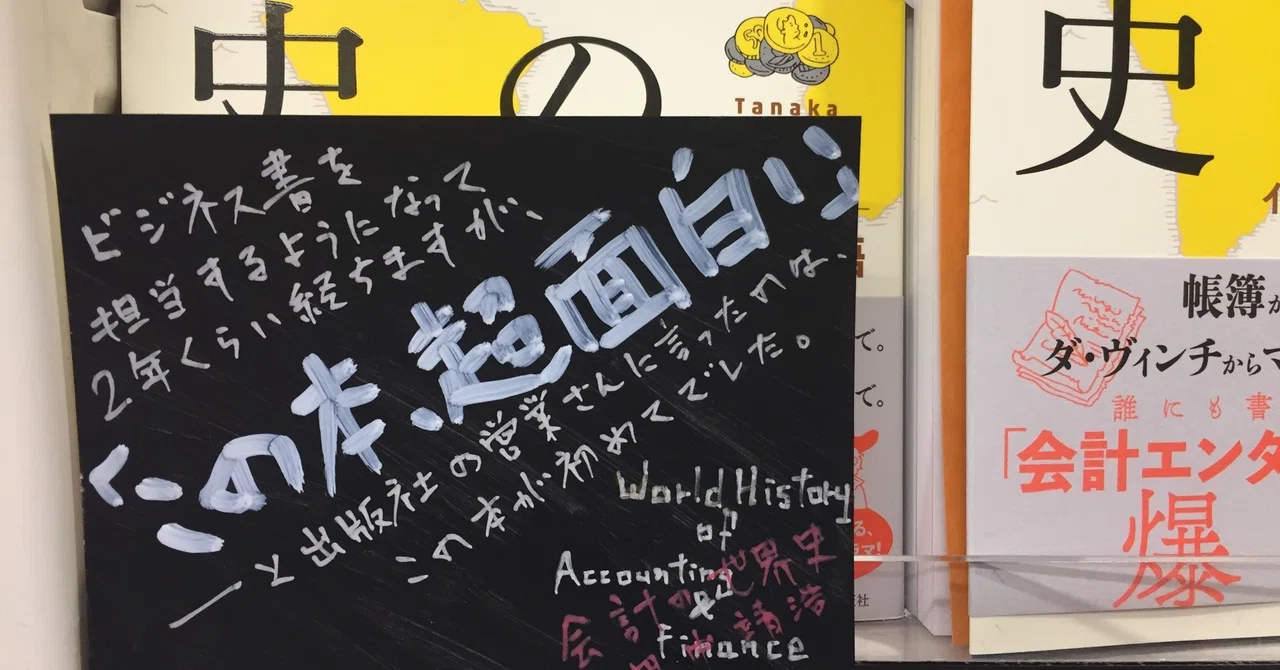 史の
Tanaka
ビジネス書を
担当するようになって
2年くらい経ちますが、
〈この本、超面白い〉
―と出版社の営業さんに言ったのは、
この本が初めてでした。
World History
of
Accounting
&
Finance
会計の世界史
田中靖浩
て。
て。
史
帳簿が
ダ・ヴィンチからマ
誰にも書
「会計エンタ
爆